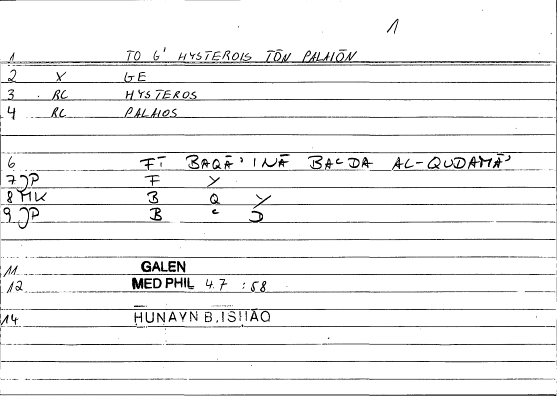 1
1 TO G' HYSTEROIS TŌN PALAIŌN
2 X GE
3 RC HYSTEROS
4 RC PALAIOS
6 FĪ BAQĀ'INĀ BAcDA AL-QUDAMĀ'
7 JP F Y
8 MK B Q Y
9 JP B c D
11 GALEN
12 MED PHIL 4.7 :58
14 HUNAYN B.ISHĀQ